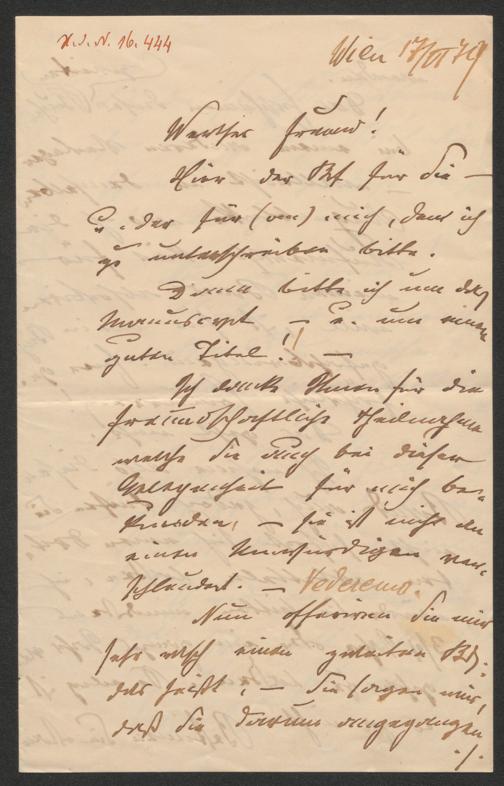 H.I.N. 16.444
Wien 17/VI 79
Werther Freund!
Hier der für Sie –
u. der für (von) mich, den ich
zu unterschreiben bitte.
Dann bitte ich um das
Manuscript – u. um einen
guten Titel! –
Ich danke Ihnen für die
freundschaftliche Theilnahme
welche Sie auch bei dieser
Gelegenheit für mich be-
kunden, – sie ist nicht an
einen Unwürdigen ver-
schleudert. – Vederemo.
Nun offeriren Sie mir
sehr rasch einen zweiten
das heißt, – Sie sagen mir,
daß Sie darum angegangen
./.